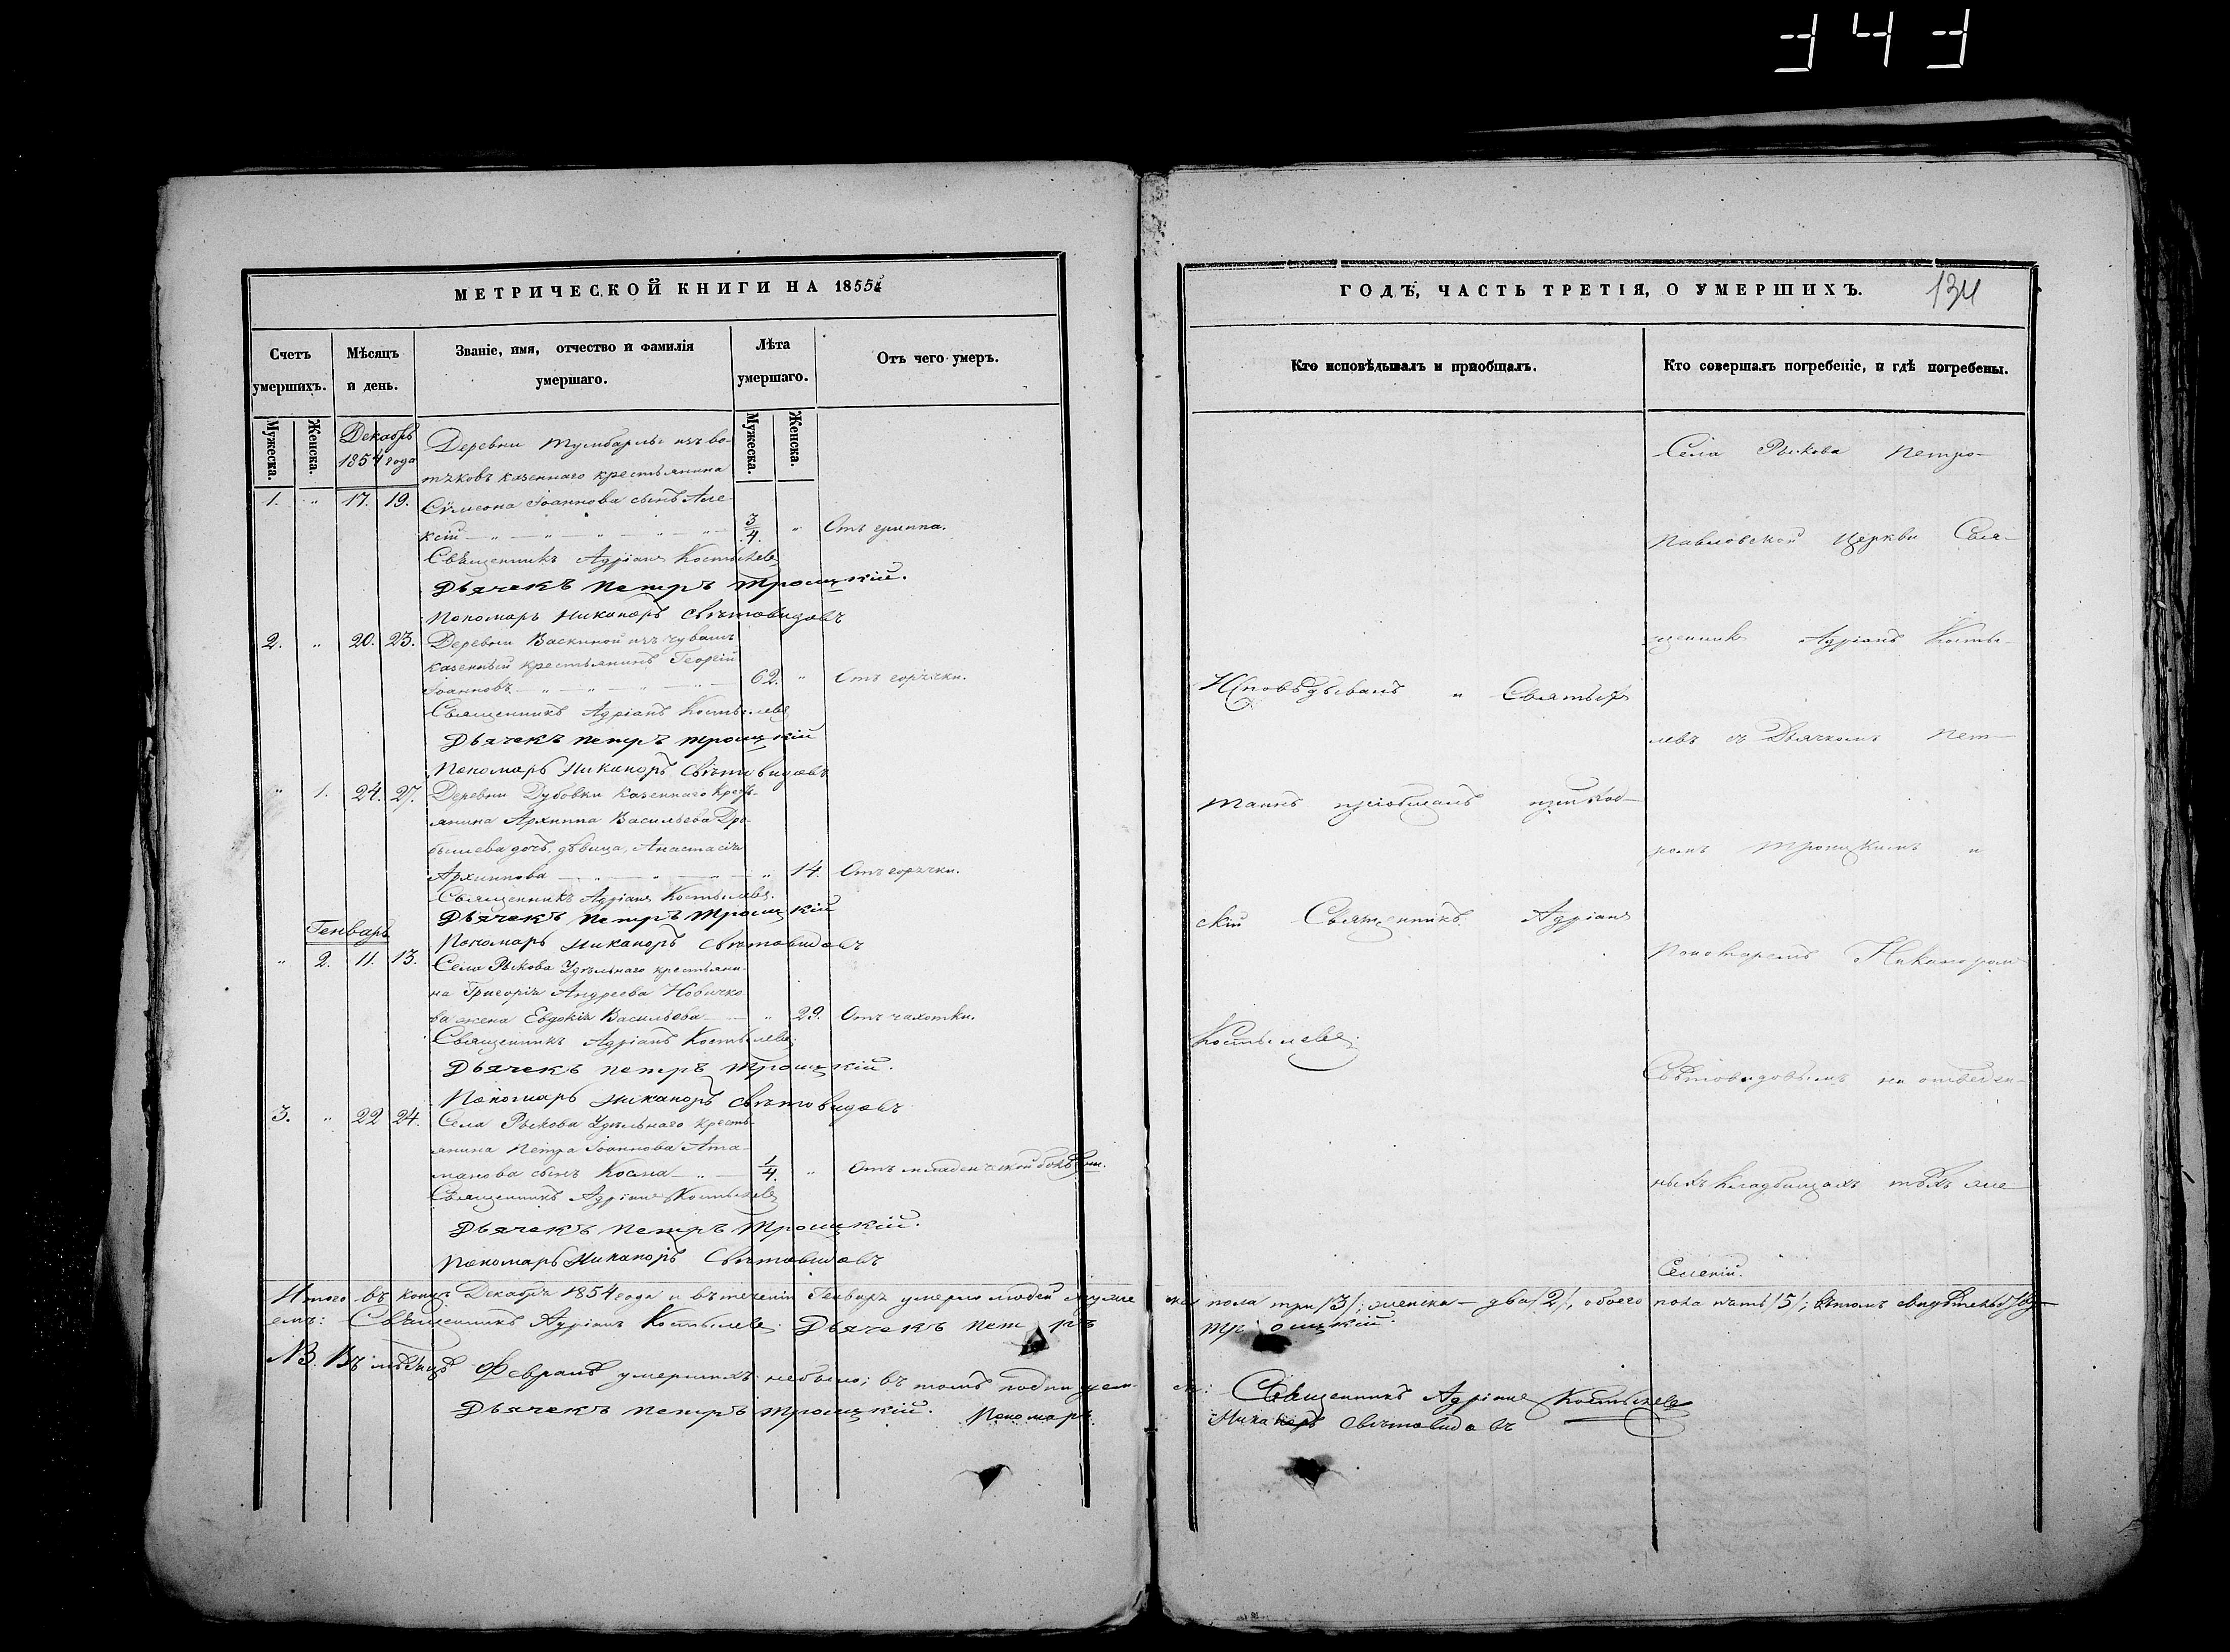 343
МЕТРИЧЕСКОЙ КНИГИ НА 1855й
Счетъ умершихъ.
Мѣсяцъ и день.
Званіе, имя, отчество и фамилія умершаго.
Лѣта умершаго.
Отъ чего умеръ.
Мужеска.
Женска.
Мужеска.
Женска.
Декабрь
1854 года
Деревни Тумбарлы изъ во-
тяковъ казеннаго крестьянина
1. " 17. 19. Сѷмеона Іоаннова сынъ Але-
ксій — " — " — " — 3/4. " Отъ гриппа.
Священникъ Адріанъ Костылевъ
Дьячекъ Петръ Троицкій.
Пономарь Никаноръ Свѣтовидовъ
2. " 20. 23. Деревни Васкиной изъ чувашъ
казенный крестьянинъ Георгій
Іоанновъ — " — " — " — 62. " Отъ горячки.
Священникъ Адріанъ Костылевъ
Дьячекъ Петръ Троицкій
Пономарь Никаноръ Свѣтовидовъ
" 1. 24. 27. Деревни Дубовки казеннаго кресть-
янина Архиппа Васильева Дро-
бышева дочь, дѣвица, Анастасія
Архиппова — " — " — " 14. Отъ горячки.
Священникъ Адріанъ Костылевъ.
Дьячекъ Петръ Троицкій
Пономарь Никаноръ Свѣтовидовъ
Генварь
" 2. 11. 13. Села Рыкова Удѣльнаго крестьяни-
на Григорія Андреева Новичко-
ва жена Евдокія Васильева — " 29. Отъ чахотки.
Священникъ Адріанъ Костылевъ
Дьячекъ Петръ Троицкій.
Пономарь Никаноръ Свѣтовидовъ
3. " 22 24. Села Рыкова Удѣльнаго кресть-
янина Петра Іоаннова Ата-
манова сынъ Косма — " — 1/4. " Отъ младенческой болѣзни.
Священникъ Адріанъ Костылевъ
Дьячекъ Петръ Троицкій.
Пономарь Никаноръ Свѣтовидовъ
Итого въ концѣ Декабря 1854 года и въ теченіи Генваря умерло людей муже
емъ: Священникъ Адріанъ Костылевъ. Дьячекъ Петръ
NB. Въ мѣсяцѣ Февралѣ умершихъ небыло; въ томъ подпи
Дьячекъ Петръ Троицкій. Пономарь
ГОДЪ, ЧАСТЬ ТРЕТІЯ, О УМЕРШИХЪ.
134
Кто исповѣдывалъ и пріобщалъ.
Кто совершалъ погребеніе, и гдѣ погребены.
Исповѣдывалъ и Святыхъ
Таинъ пріобщалъ приход-
скій Священникъ Адріанъ
Костылевъ.
Села Рыкова Петро-
Павловской Церкви Свя-
щенникъ Адріанъ Косты-
левъ съ Дьячкомъ Пет-
ромъ Троицкимъ и
Пономаремъ Никаноромъ
Свѣтовидовымъ на отведен-
ныхъ кладбищахъ тѣхъ же
Селеній.
ска пола три /3/; женска — два /2/, обоего пола пять /5/; въ томъ свидѣтельству-
Троицкій.
Священникъ Адріанъ Костылевъ
Никаноръ Свѣтовидовъ